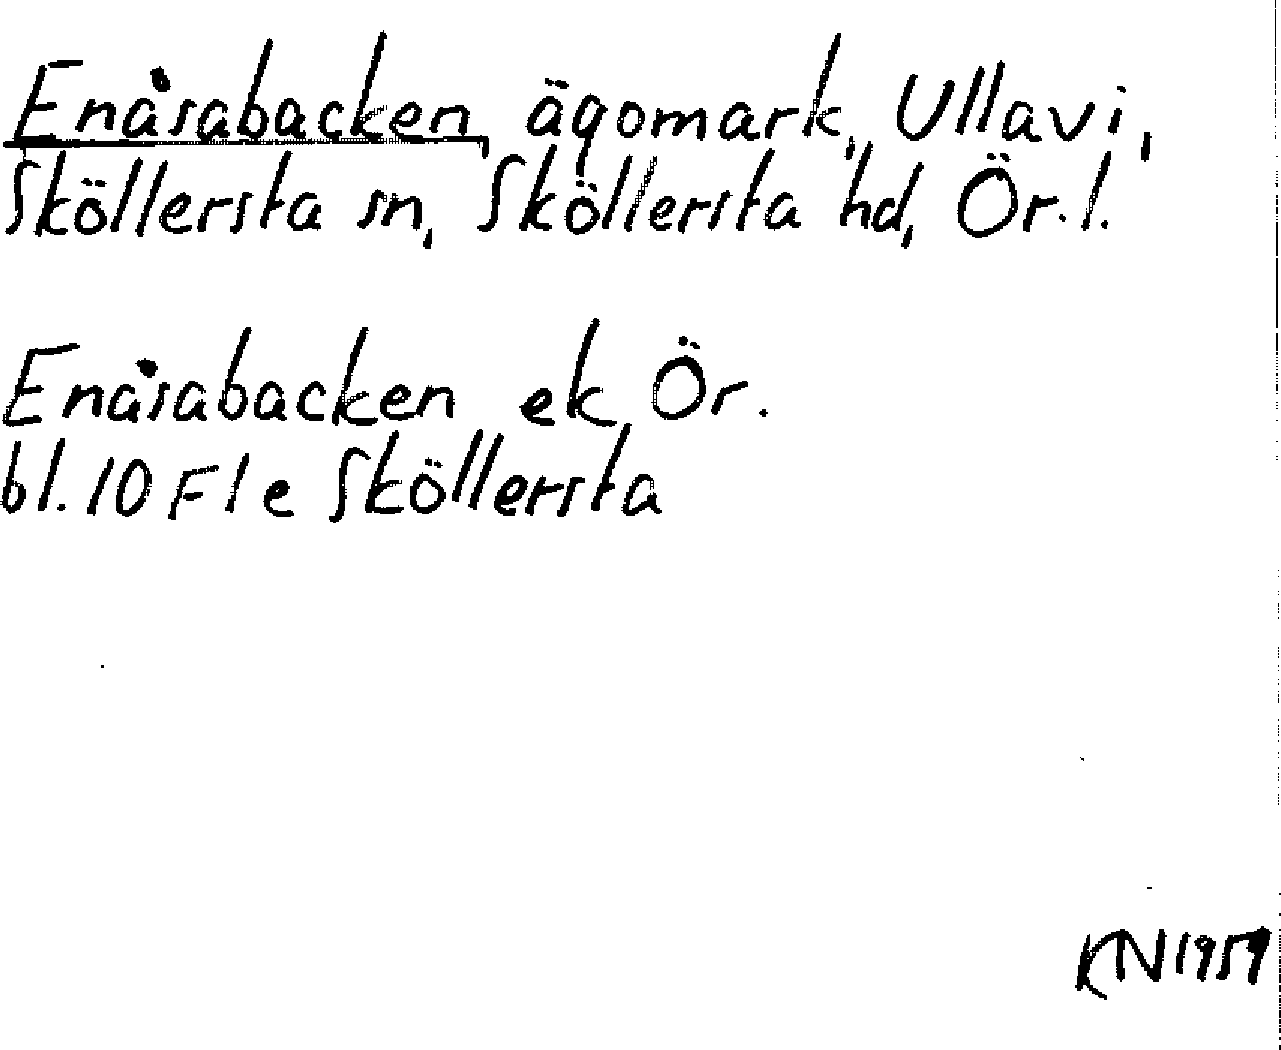 Enåsabacken, ägomark, Ullavi,
Sköllersta sn, Sköllersta hd, Ör. l.
Enåsabacken ek Ör.
bl. 10 F1e Sköllersta
KN 1959